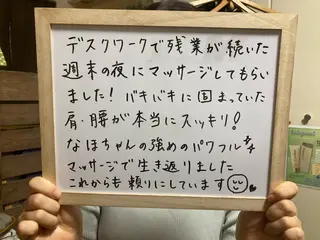 デスクワークで残業が続いた
週末の夜にマッサージしてもらい
ました！バキバキに固まっていた
肩・腰が本当にスッキリ！
なほちゃんの強めのパワフル
マッサージで生き返りました
これからも頼りにしています